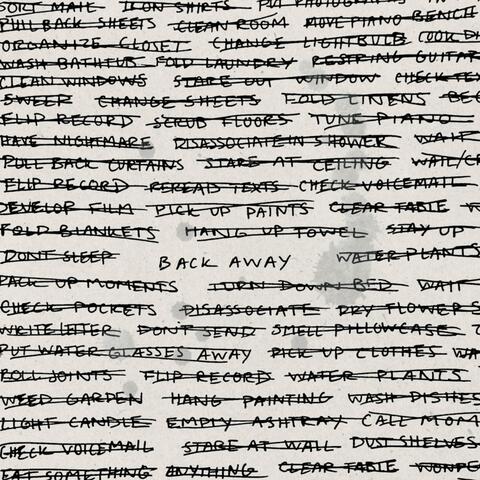 SORT MAIL IRON SHIRTS PUT PHOTOGRAPHS
PULL BACK SHEETS CLEAN ROOM MOVE PIANO BENCH
ORGANIZE CLOSET CHANGE LIGHTBULB COOK
WASH BATHTUB FOLD LAUNDRY RESTRING GUITAR
CLEAN WINDOWS STARE OUT WINDOW CHECK
SWEEP CHANGE SHEETS FOLD LINENS
FLIP RECORD SCRUB FLOORS TUNE PIANO
HAVE NIGHTMARE DISASSOCIATE IN SHOWER WAIT
PULL BACK CURTAINS STARE AT CEILING WAIL/
FLIP RECORD REREAD TEXTS CHECK VOICEMAIL
DEVELOP FILM PICK UP PAINTS CLEAR TABLE
FOLD BLANKETS HANG UP TOWEL STAY UP
DONT SLEEP BACK AWAY WATER PLANTS
PACK UP MOMENTS TURN DOWN BED WAIT
CHECK POCKETS DISASSOCIATE DRY FLOWERS
WRITE LETTER DON'T SEND SMELL PILLOWCASE
PUT WATER GLASSES AWAY PICK UP CLOTHES
ROLL JOINTS FLIP RECORD WATER PLANTS
WEED GARDEN HANG PAINTING WASH DISHES
LIGHT CANDLE EMPTY ASHTRAY CALL MOM
CHECK VOICEMAIL STARE AT WALL DUST SHELVES
EAT SOMETHING ANYTHING CLEAR TABLE